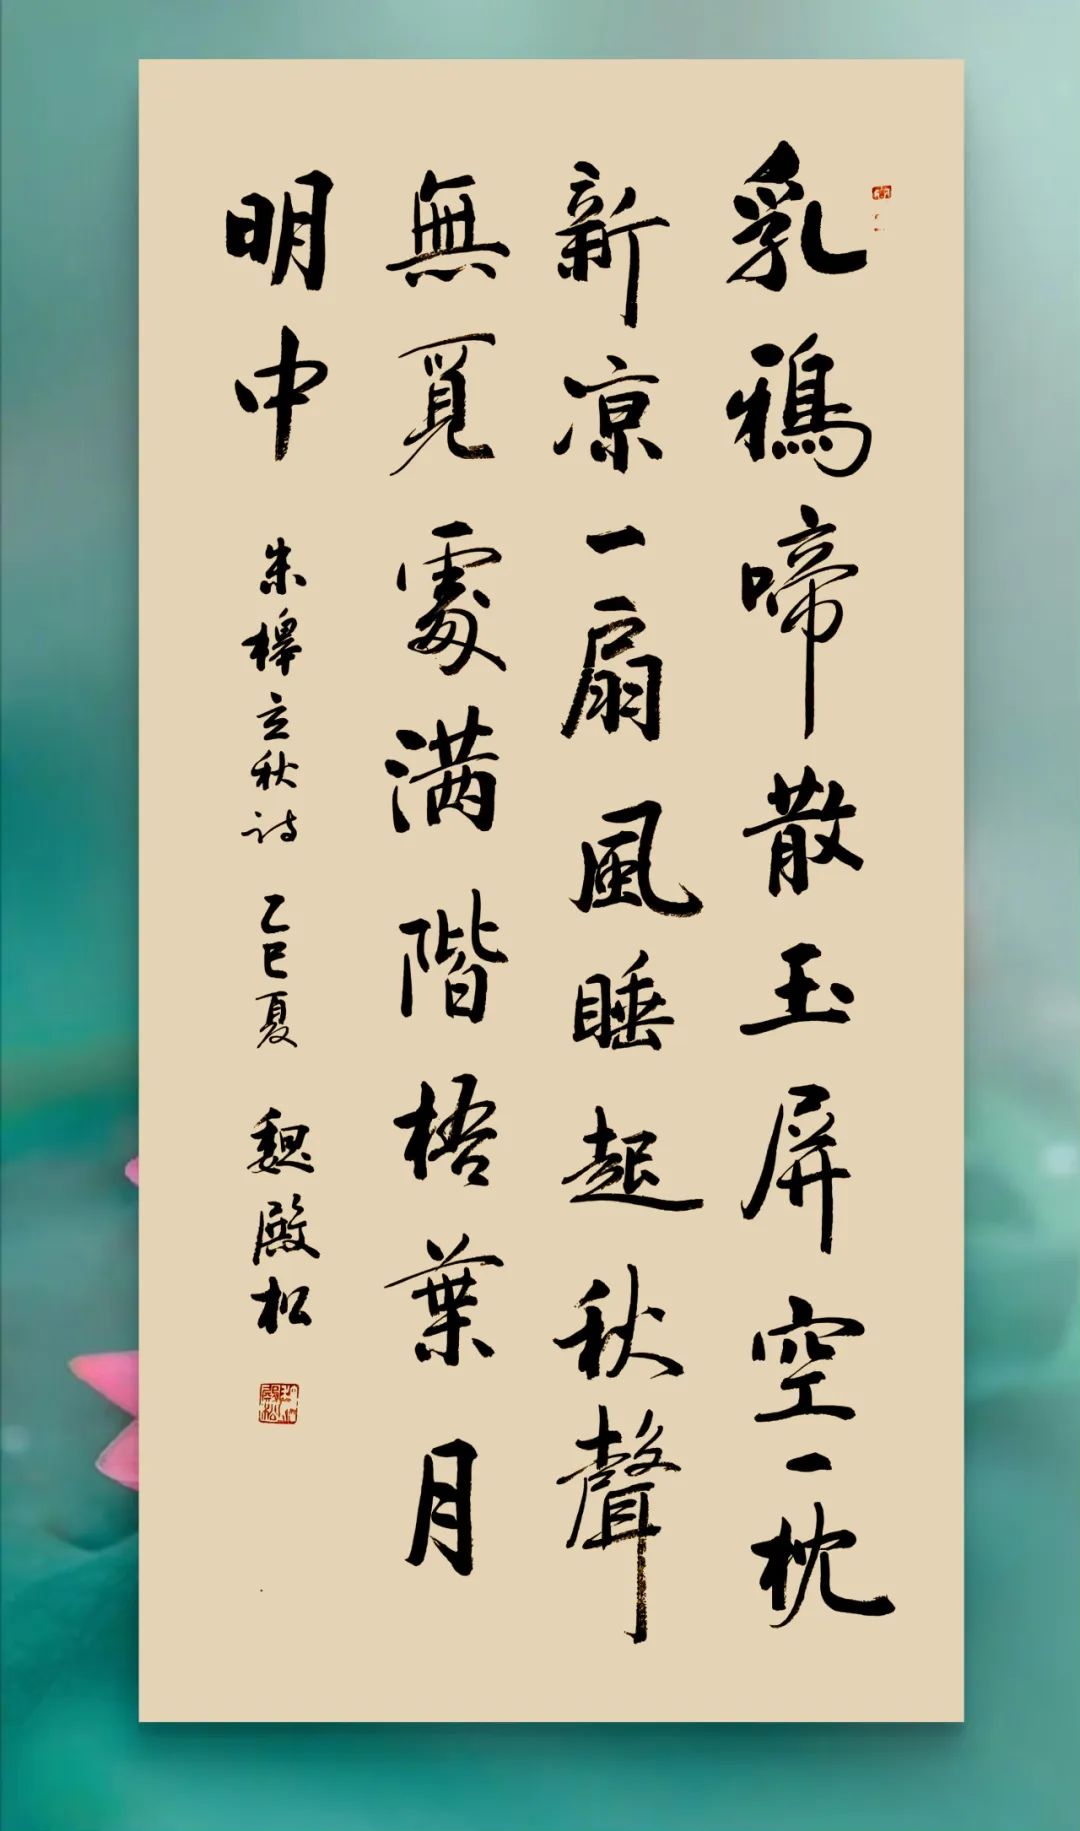 乳鴉啼散玉屏空一枕
新凉一扇風睡起秋聲
無覓處满階梧葉月
明中
朱槔立秋诗 乙巳夏 魏殿松